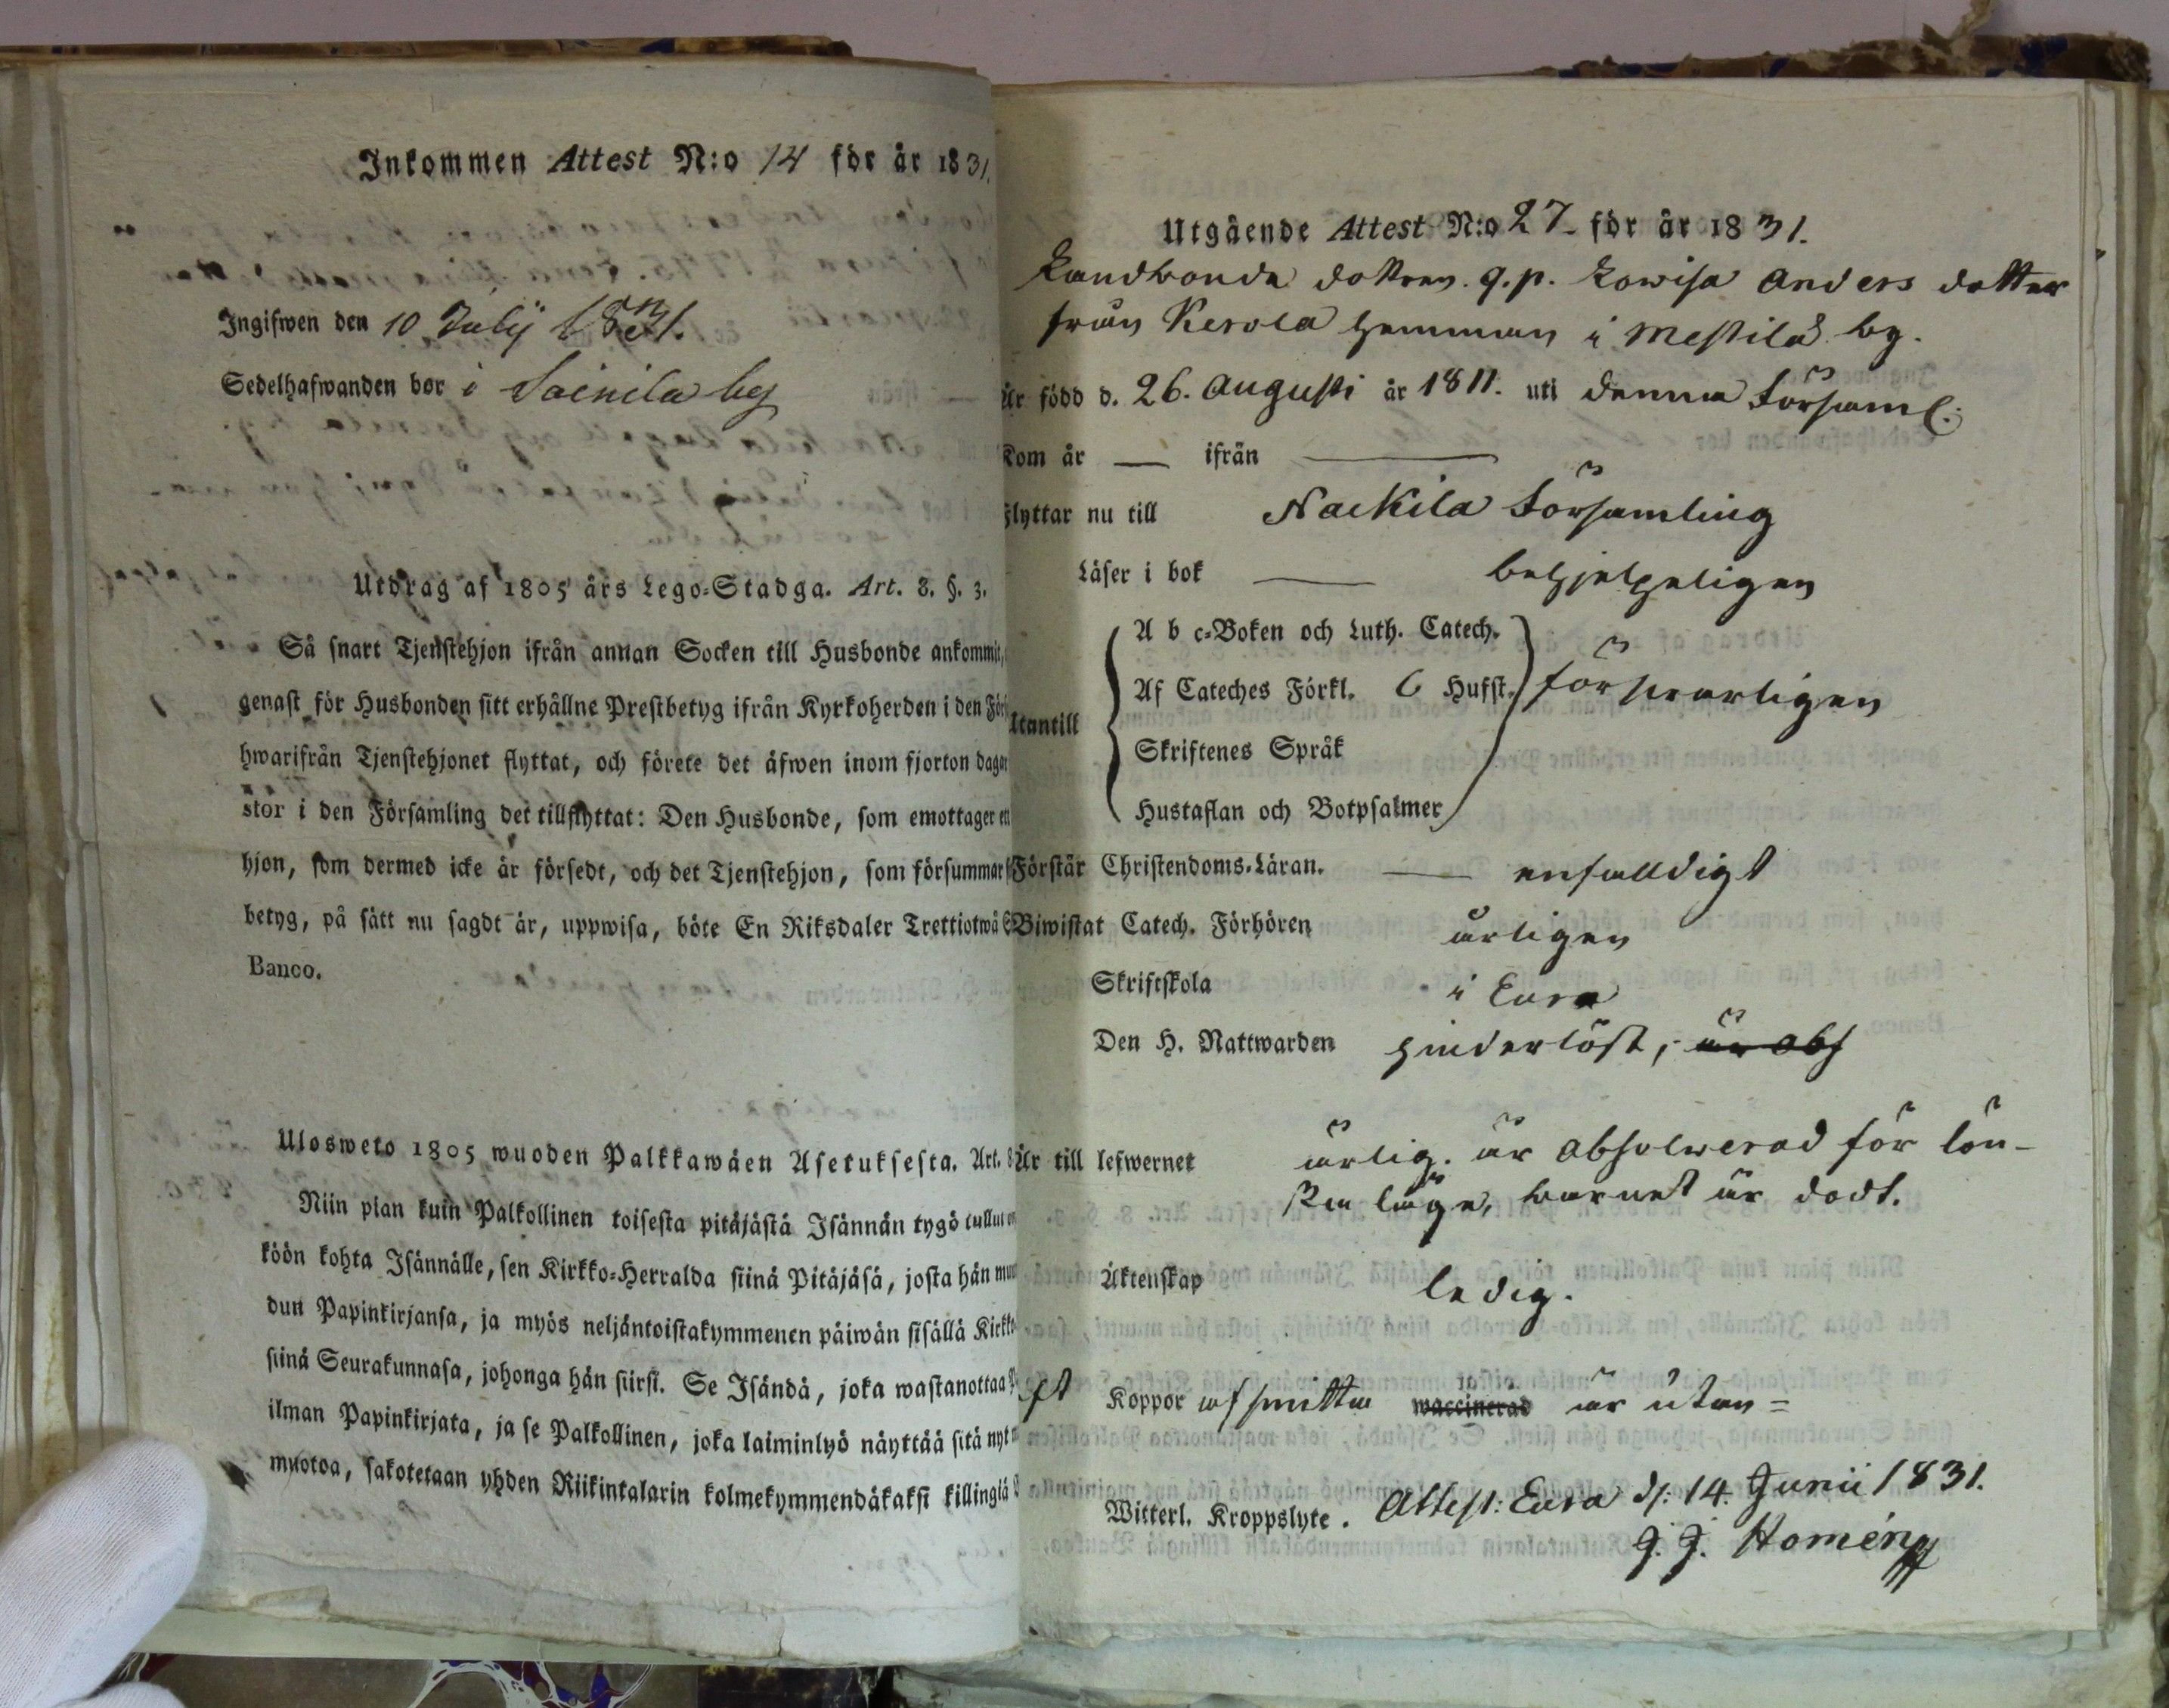 Inkommen Attest N:o 14 för år 1831.
Ingifwen den 10 Julij 1831.
Sedelhafwanden bor i Soinila by
Utdrag af 1805 års Lego-Stadga. Art. 8. §. 3.
Så snart Tjenstehjon ifrån annan Socken till Husbonde ankommit,
genast för Husbonden sitt erhållne Prestbetyg ifrån Kyrkoherden i den För
hwarifrån Tjenstehjonet flyttat, och förete det äfwen inom fjorton dagar
stor i den Församling det tillflyttat: Den Husbonde, som emottager en
hjon, som dermed icke är försedt, och det Tjenstehjon, som försummar
betyg, på sätt nu sagdt är, uppwisa, böte En Riksdaler Trettiotwå
Banco.
Ulosweto 1805 wuoden Palkkawäen Asetuksesta. Art. 8
Niin pian kuin Palkollinen toisesta pitäjästä Isännän tygö tullut
köön kohta Isännälle, sen Kirkko-Herralda siinä Pitäjäsä, josta hän muu
dun Papinkirjansa, ja myös neljäntoistakymmenen päiwän sisällä Kirkko
siinä Seurakunnasa, johonga hän siirsi. Se Isändä, joka wastanottaa
ilman Papinkirjata, ja se Palkollinen, joka laiminlyö näyttää sitä nyt
muotoa, sakotetaan yhden Riikintalarin kolmekymmendäkaksi killingiä
Utgående Attest N:o 27 för år 1831.
Landbonde dottren. q.p. Lowisa Anders dotter
från Kerola hemman i Mestilä by.
Är född d. 26. Augusti år 1811. uti denna Församl:
Kom år — ifrån —
Flyttar nu till Nackila Församling
Läser i bok — behjelpeligen
A b c-Boken och Luth. Catech.
Af Cateches Förkl. 6 Husst. försvarligen
Utantill
Skriftenes Språk
Hustaflan och Botpsalmer
Förstår Christendoms-Läran. — enfalldigt
Biwistat Catech. Förhören årligen
Skriftskola i Eura
Den H. Nattwarden hinderlöst, är abs
Är till lefwernet ärlig. är absolwerad för lön-
ska läge, barnet är dödt.
Äktenskap ledig.
Koppor af smitta waccinerad är utan =
Witterl. Kroppslyte. Attest: Eura d: 14. Junii 1831.
J. J. Homén